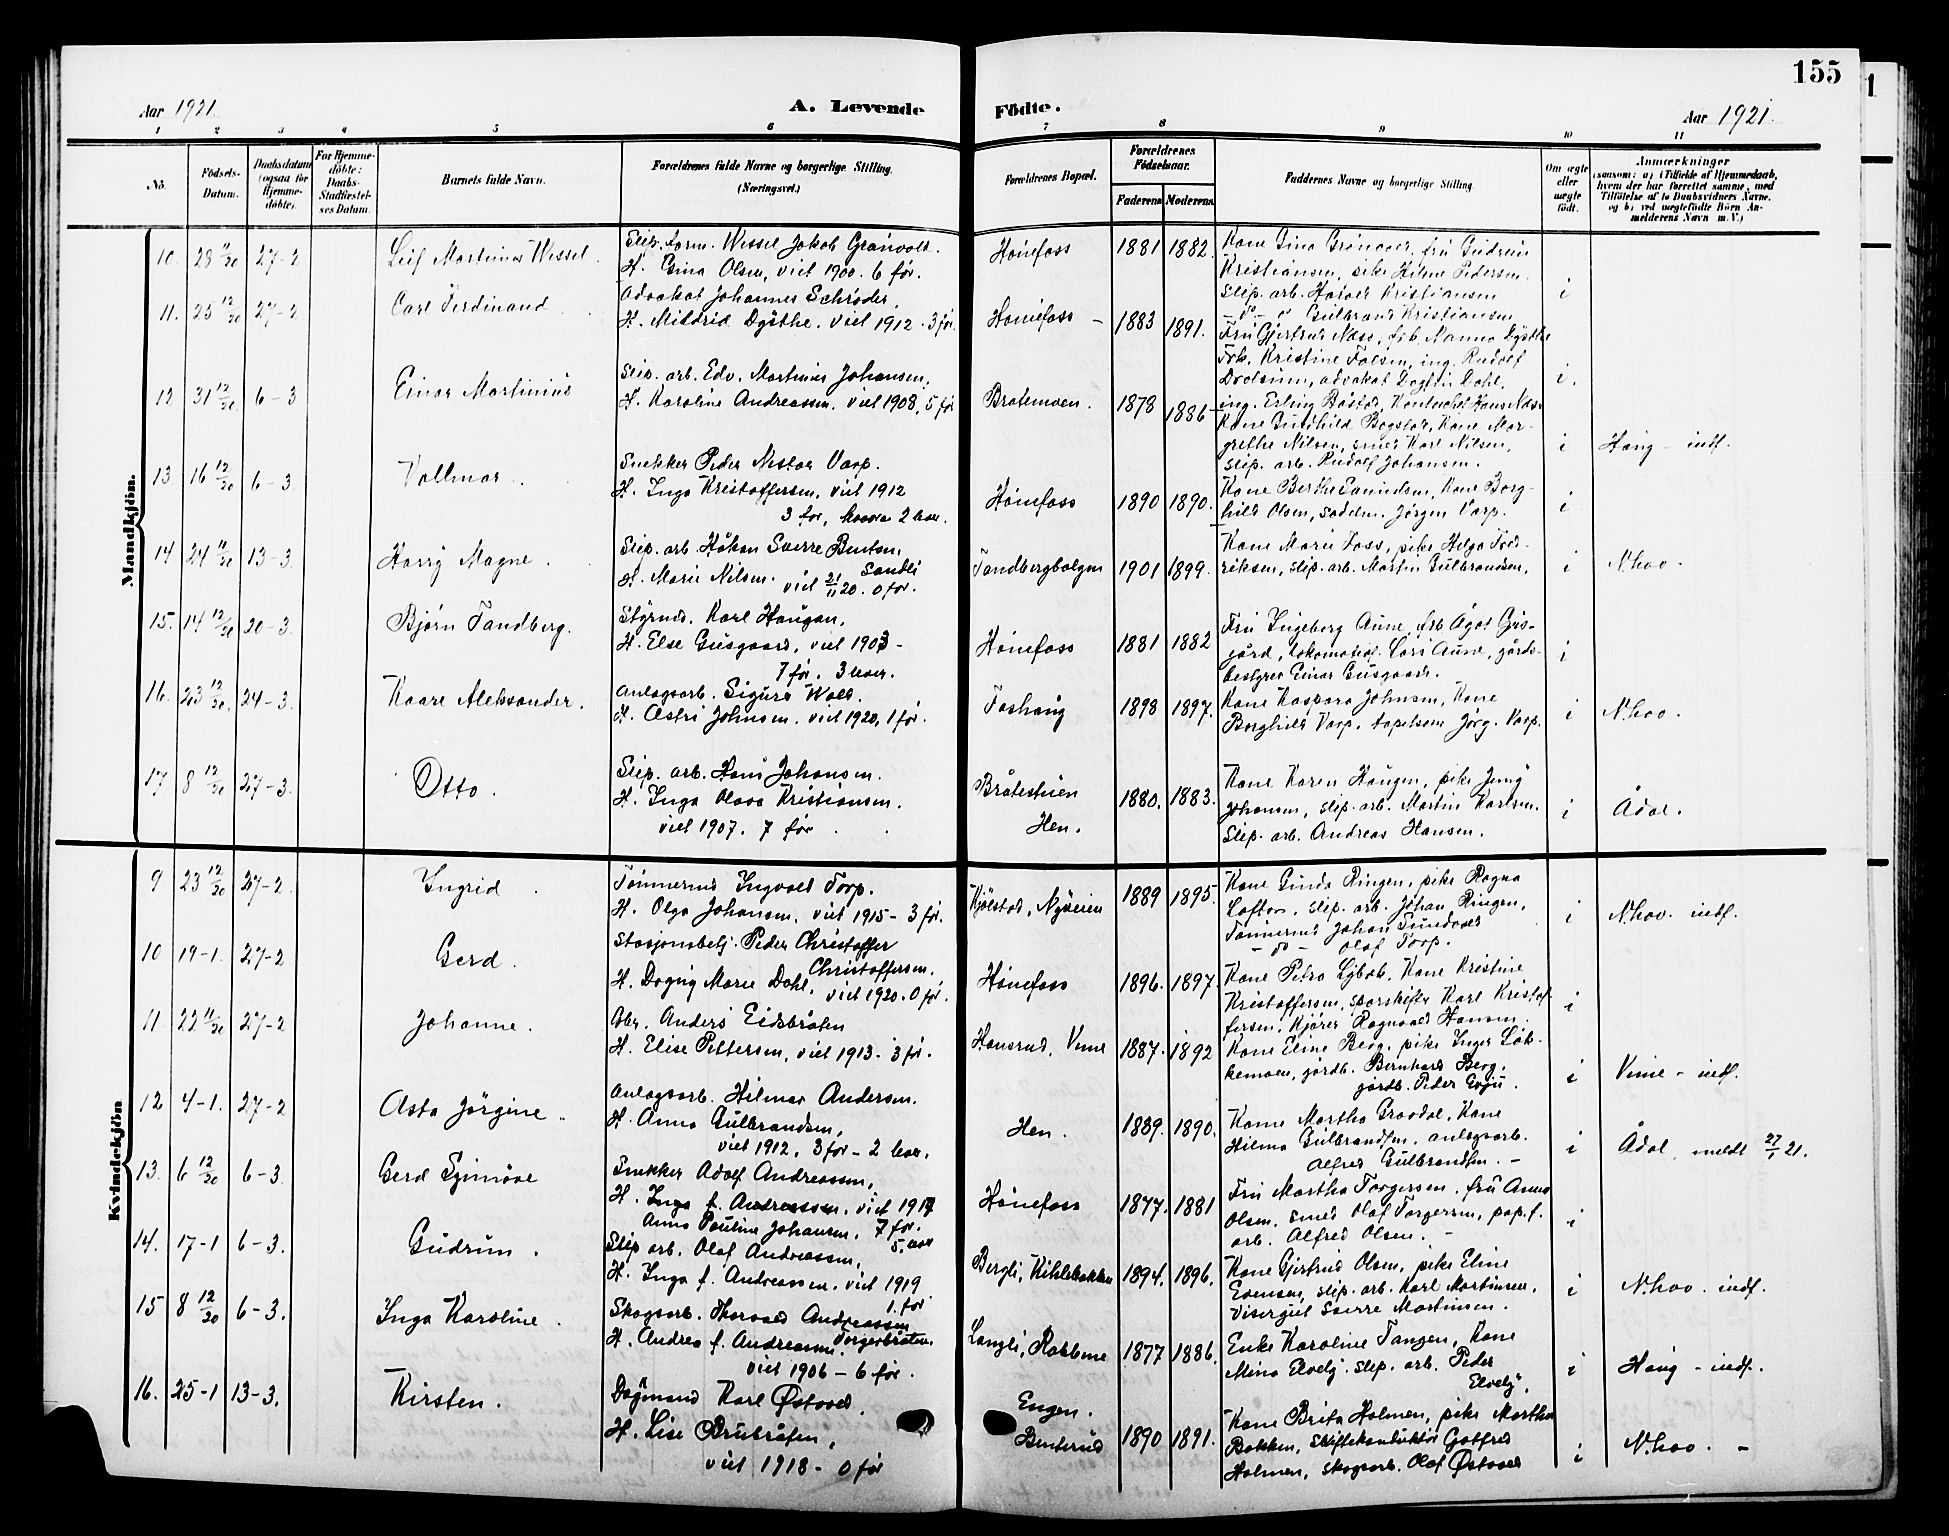 155
Aar 1921.
A. Levende
Födte.
Aar 1921.
1 2 3 4 5 6 7 8 9 10 11
No.
Födsels-
Datum.
Daabsdatum
(ogsaa for
Hjemme-
döbte).
For Hjemme-
döbte:
Daabs-
Stadfæstel-
ses Datum.
Barnets fulde Navn.
Forældrenes fulde Navne og borgerlige Stilling.
(Næringsvei.)
Forældrenes Bopæl.
Forældrenes
Födselsaar.
Faderens
Moderens
Faddernes Navne og borgerlige Stilling.
Om ægte
eller
uægte
födt.
Anmærkninger
(saasom: a) i Tilfælde af Hjemmedaab,
hvem der har forrettet samme, med
Tilföielse af to Daabsvidners Navne.
og b) ved uægtefödte Börn An-
melderens Navn m. V.)
Mandkjön.
10. 28 11/20 27-2 Leif Martinus Wessel.
Slip. form. Wessel Jakob Grønvold.
H. Gina Olsen, viet 1900. 6 før.
Hønefoss 1881 1882.
Kone Gina Grønvold, fru Gudrun
Kristiansen, pike Hilma Pedersen.
Slip. arb. Harald Kristiansen
Gulbrand Kristiansen
i
11. 25 12/20 27-2 Carl Ferdinand
Advokat Johannes Schrøder.
H. Mildrid Dysthe. viet 1912. 3 før.
Hønefoss - 1883 1891.
Fru Gjertrud Næss, frk. Nanna Dysthe
Frk. Kristine Falsen, ing. Rudolf
advokat Dagfin Dahl,
ing. Erling Hans Næss
i.
12 31 12/20 6-3 Einar Martinius
Slip. arb. Edv. Martinius Johansen.
H. Karoline Andreassen. viet 1908, 5 før
Bratemoen. 1878 1886
Kone Gunhild Bogstad, Kone Mar-
grethe Nilsen, smed Karl Nilsen,
slip. arb. Rudolf Johansen.
i Haug - indf.
13. 16 12/20 6-3 Vollmar.
Snekker Peder Nestor Varp.
H. Inga Kristoffersen, viet 1912
3 før, hvorav 2 lever.
Hønefoss 1890 1890.
Kone Berthe Kone Borg-
hild Olsen, sadelm. Jørgen Varp.
i
14. 24 11/20 13-3 Harry Magne.
Slip. arb. Håkon Sverre Bentsen
Sandli
H. Marie Nilsen. viet 21/11 20. 0 før.
1901 1899.
Kone Marie Foss, pike Helga Fred-
riksen, slip. arb. Martin Gulbrandsen,
i N.hov.
15. 14 12/20 20-3. Bjørn Tandberg.
Styrmd. Karl Haugan,
H. Else Gusgaard, viet 1903 -
7 før. 3 lever.
Hønefoss 1881 1882
Fru Ingeborg Aune, frk Ågot Gus-
gård, Aune, gårds-
bestyrer Einar Gusgaard.
i
16. 23 12/20. 24-3. Kaare Aleksander.
Anlagsarb. Sigurd Wold.
H. Astri Johnsen. viet 1920, 1 før.
Foshaug 1898 1897.
Kone Kaspara Johnsen, Kone
Borghild Varp, tapetsem Jørg. Varp.
i N.hov.
17 8 12/20 27-3. Otto.
Slip. arb. Hans Johansen.
H. Inga Olava Kristiansen.
viet 1907. 7 før
Bråtestuen
Hen.
1880. 1883.
Kone Karen Haugen, pike Jenny
Johansen, slip. arb. Martin Karlsen.
Slip. arb. Andreas Hansen.
i Ådal.
Kvindekjön
9 23 12/20 27-2. Ingrid.
Tømmermd Ingvald Torp.
H. Olga Johansen, viet 1915 - 3 før.
Kjølstad, Nyveien 1889 1895.
Kone Ginda Ringen, pike Ragna
Lofton, slip. arb. Johan Ringen,
Tømmermd Johan Sundvold
- do - Olaf Torp.
i N.hov. indf.
10 19-1. 27-2 Gerd.
Stasjonsbetj. Peder Christoffer
Christoffersen.
H. Dagny Marie Dahl, viet 1920. 0 før.
Hønefoss 1896. 1897
Kone Petra Kone Kristine
Kristoffersen, sporskifter Karl Kristof-
fersen, Kjører Ragnvald Hansen.
i
11. 22 11/20 27-2 Johanne.
Gbr. Anders Eidsbråten
H. Elise Pettersen, viet 1913. 3 før.
Hansrud, Veme 1887. 1892
Kone Eline Berg, pike Inger Løk-
kemoen, gårdb. Bernhard Berg,
gårdb. Peder
i Veme - indf.
12 4-1. 27-2 Asta Jørgine.
Anlagsarb. Hilmar Andersen.
H. Anna Gulbrandsen,
viet 1912, 3 før - 2 lever.
Hen. 1889. 1890.
Kone Martha Kone
Hilma Gulbrandsen, anlagsarb.
Alfred Gulbrandsen. -
i Ådal, meldt 27/1 21.
13. 6 12/20 6-3. Gerd Synnøve
Snekker Adolf Andreassen,
H. Inga f. Andreassen, viet 1917
Anna Pauline Johansen, 7 før.
5 lever
Hønefoss 1877. 1881
Fru Martha Torgersen, fru Anna
Olsen, smed Olaf Torgersen, pap. f.
arb. Alfred Olsen. -
i
14. 17-1 6-3. Gudrun.
Slip arb. Olaf Andreassen,
H. Inga f. Andreassen. viet 1919
1. før
Bergli, 1894. 1896.
Kone Gjertrud Olsen, pike Eline
Evensen, slip. arb. Karl Martinsen.
Visergut Sverre Martinsen.
i N.hov. indf.
15 8 12/20 6-3. Inga Karoline.
Skogsarb. Thorvald Andreassen
Torgerbråten.
H. Andrea f. Andreassen.
viet 1906 - 6 før.
Langli, 1877 1886.
Enke Karoline Tangen, Kone
Mina Elvelj. slip. arb. Peder
Elvelj.
i Haug - indf.
16. 25-1 13-3. Kirsten.
Dagmand Karl Østvold.
H. Lise Brubråten,
viet 1918 - 0 før
Engen.
Benterud
1890 1891.
Kone Brita Holmen, pike Martha
Bakken, skiftekonduktør Gotfred
Holmen, skogsarb. Olaf Østvold
i N.hov. -